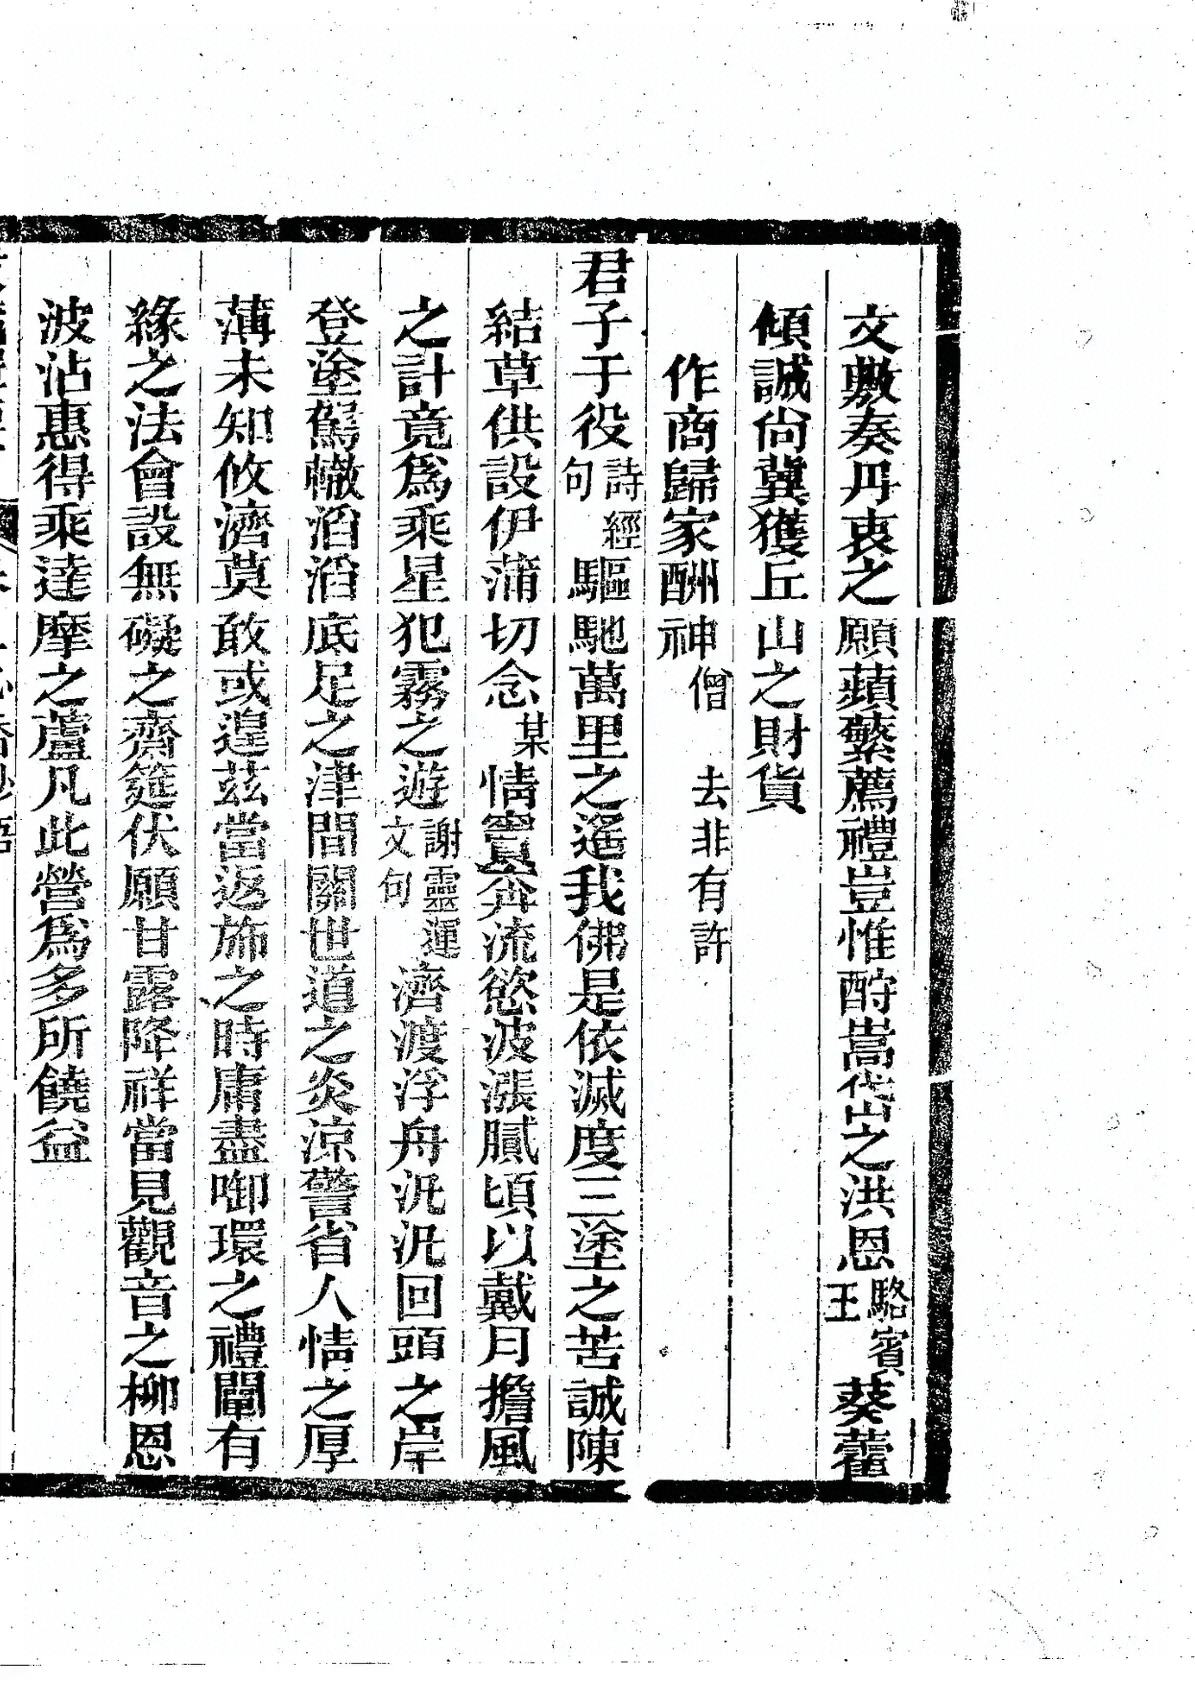 文敷奏丹衷之願蘋蘩薦禮豈惟酧嵩岱之洪恩駱賓王葵藿
傾誠尙冀獲丘山之財貨
作商歸家酬神僧 去非有許
君子于役詩經句驅馳萬里之遙我佛是依滅度三塗之苦誠陳
結草供設伊蒲切念某情竇奔流慾波漲膩頃以戴月擔風
之計竟爲乘星犯霧之遊謝靈運文句濟渡浮舟汎汎回頭之岸
登塗駕轍滔滔底足之津間關世道之炎凉警省人情之厚
薄未知攸濟莫敢或遑茲當返斾之時庸盡啣環之禮闡有
緣之法會設無礙之齋筵伏願甘露降祥當見觀音之柳恩
波沾惠得乘達摩之蘆凡此營爲多所饒益